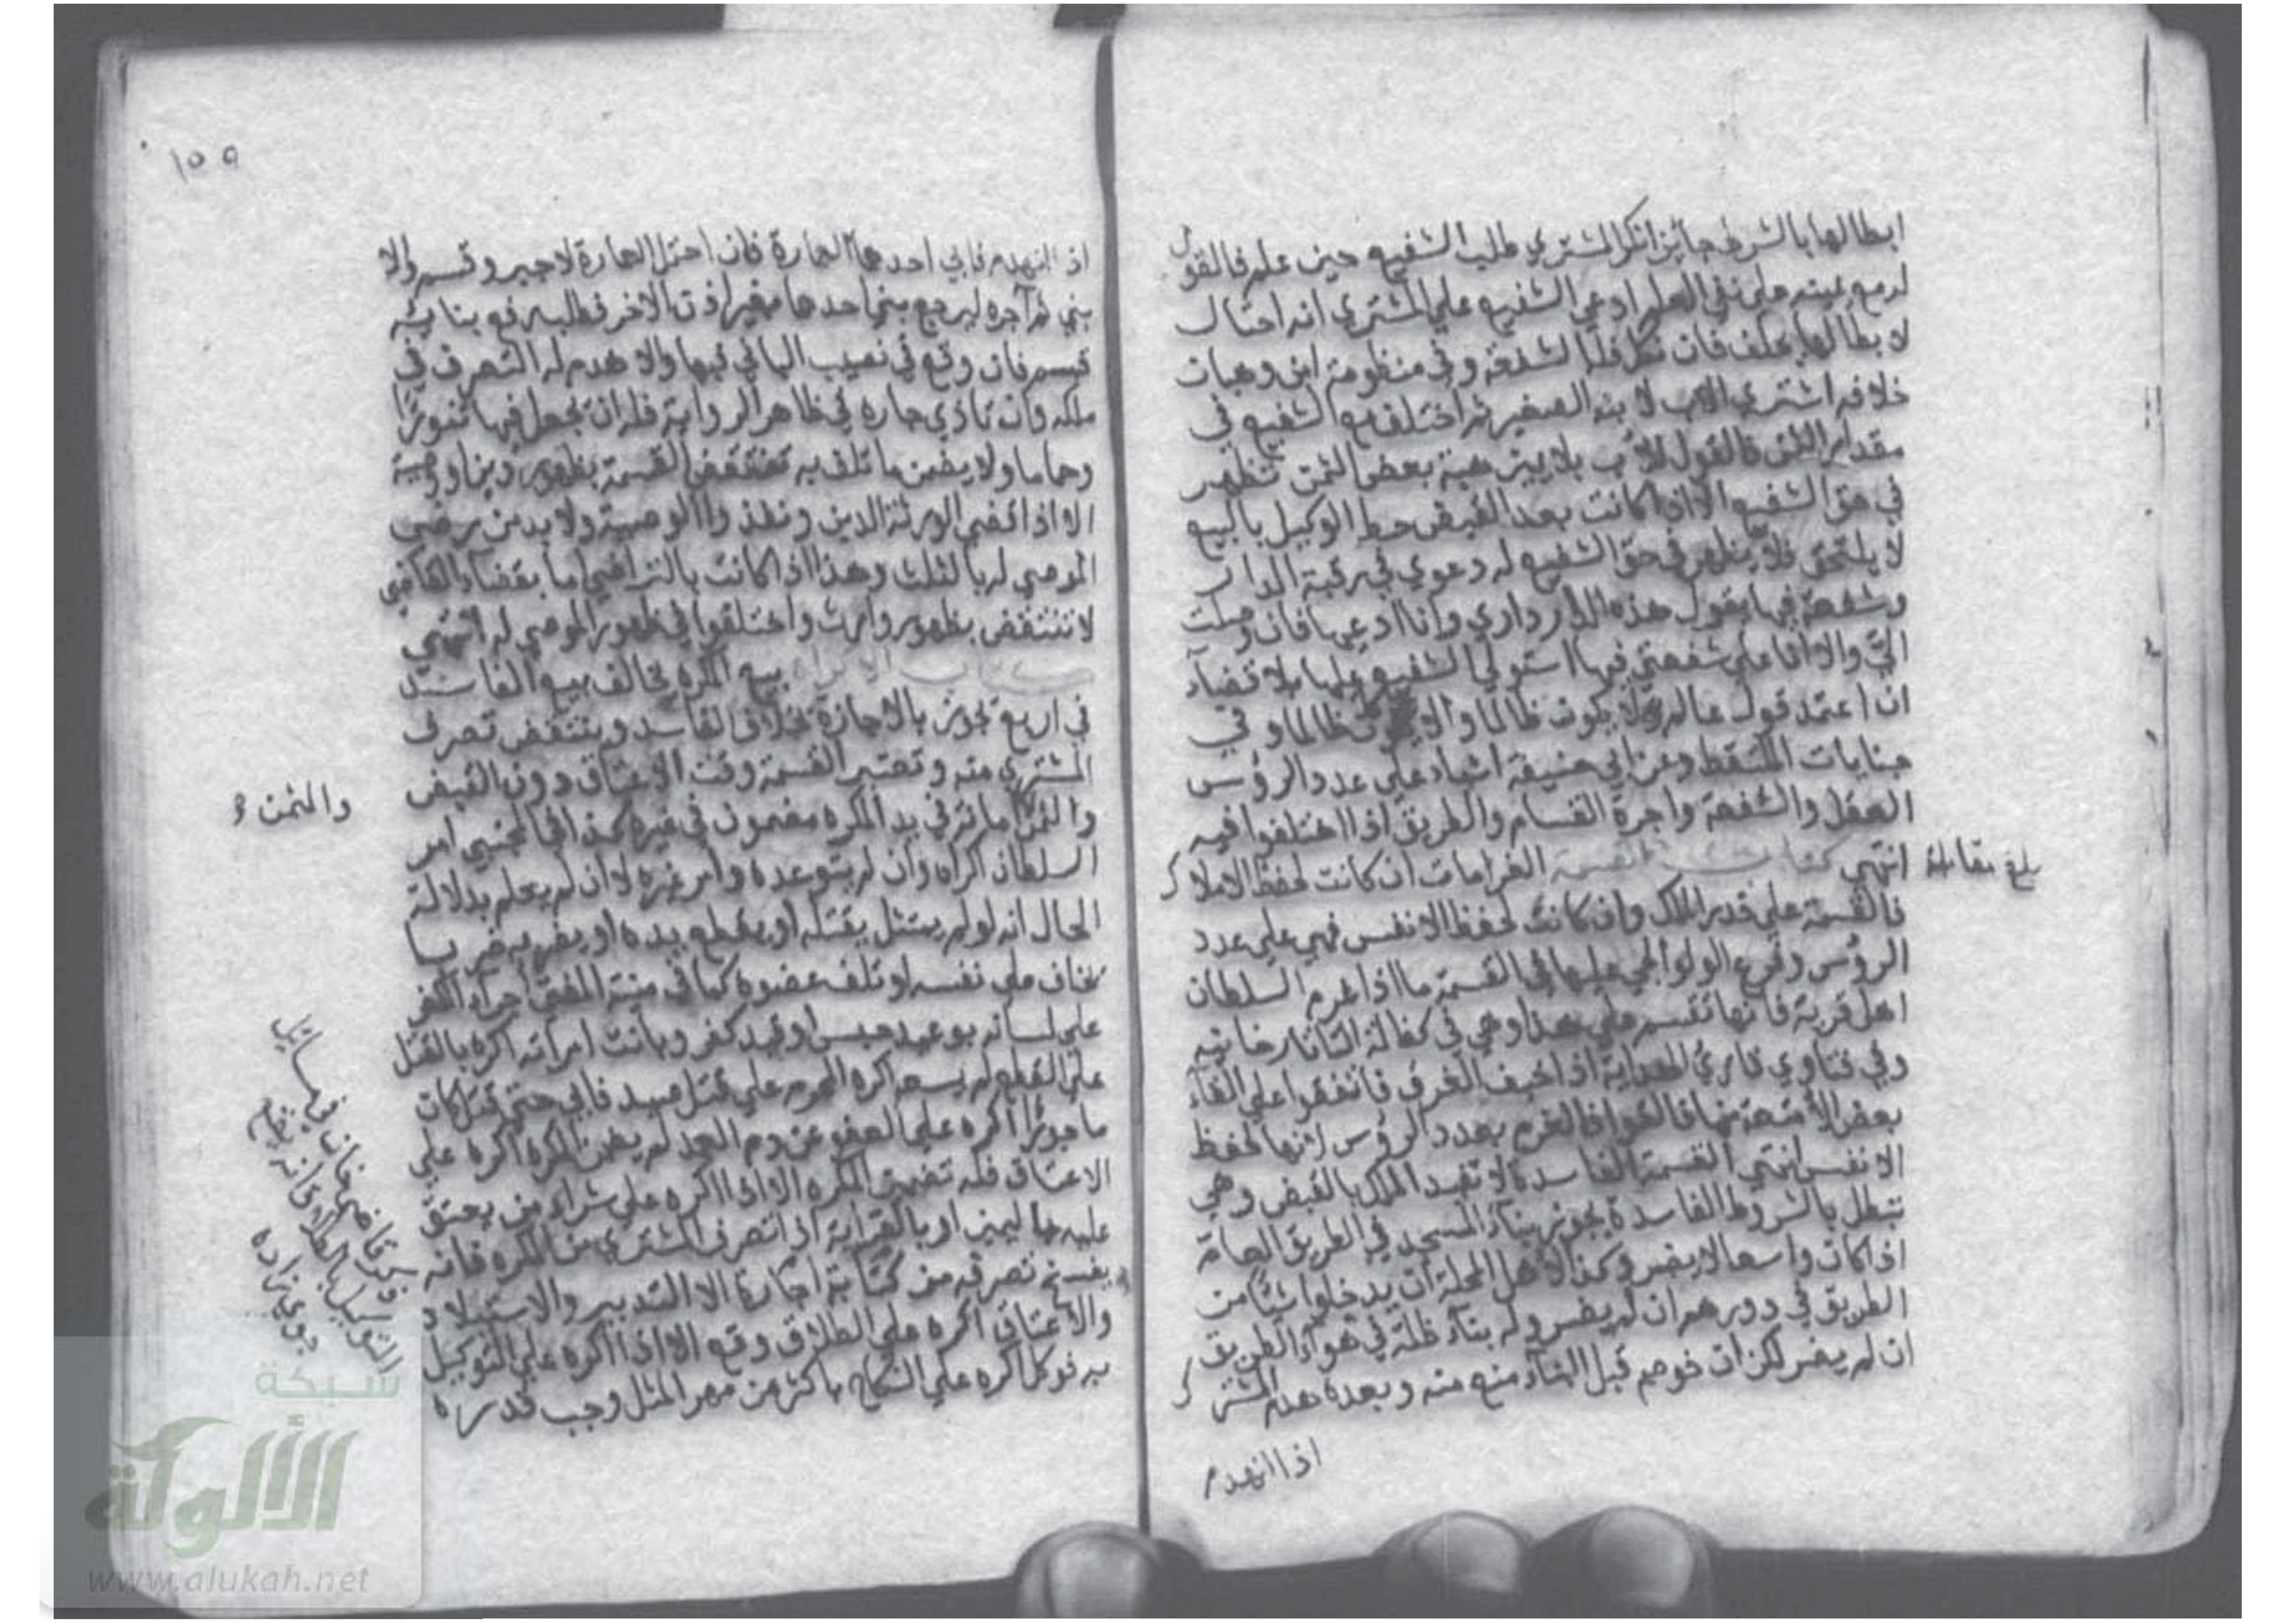 ابطالها بالشرط جائز انكر المشتري طلب الشفيع حين علم فالقول
له مع يمينه على نفي العلم ادعي الشفيع علي المشتري انه احتال
لابطالها يحلف فان نكل فله الشفعة وفي منظومة ابن وهبان
خلافه اشتري الاب لابنه الصغير ثم اختلف مع الشفيع في
مقدار الثمن فالقول للاب بلا يمين هبة بعض الثمن تظهر
في حق الشفيع الا اذا كانت بعد القبض حط الوكيل بالبيع
لا يلتحق فلا يظهر في حق الشفيع له دعوي في رقبة الدار
وشفعة فيها يقول هذه الدار داري وانا ادعيها فان وصلت
الي والا فانا علي شفعتي فيها استولي الشفيع عليها بلا قضاء
ان اعتمد قول عالم لا يكون ظالما والا كان ظالما وفي
جنايات الملتقط وعن ابي حنيفة اشياء علي عدد الرؤس
العقل والشفعة واجرة القسام والطريق اذا اختلفوا فيه
بلغ مقابلة
انتهي كتاب القسمة الغرامات ان كانت لحفظ الاملاك
فالقسمة علي قدر الملك وان كانت لحفظ الانفس فهي علي عدد
الرؤس وفرع الولوالجي عليها في القسمة ما اذا غرم السلطان
اهل قرية فانها تقسم علي هذا وهي في كفالة التاتارخانيه
وفي فتاوي قاري الهداية اذا خيف الغرق فاتفقوا علي القاء
بعض الامتعة منها فالقوا فالغرم بعدد الرؤس لانها لحفظ
الانفس انتهي القسمة الفاسدة لا تفيد الملك بالقبض وهي
تبطل بالشروط الفاسدة يجوز بناء المسجد في الطريق العامة
اذا كان واسعا لا يضر وكذا لاهل المحلة ان يدخلوا شيئا من
الطريق في دورهم ان لم يضر وله بناء ظلة في هواء الطريق
ان لم يضر لكن ان خوصم قبل البناء منع منه وبعده هدم المشترك
اذا انهدم
١٥٥
اذا انهدم فابي احدهما العمارة فان احتمل العمارة لا جبر وقسم والا
بني ثم آجره ليرجع بني احدهما بغير اذن الاخر فطلب رفع بنائه
قسم فان وقع في نصيب الباني فبها والا هدم له التصرف في
ملكه وان تاذي جاره في ظاهر الرواية فله ان يجعل فيها تنورا
وحماما ولا يضمن ما تلف به تنتقض القسمة بظهور دين او وصية
الا اذا قضي الورثة الدين ونفذوا الوصية ولا بد من رضي
الموصي له بالثلث وهذا اذا كانت بالتراضي اما بقضاء القاضي
لا تنتقض بظهور وارث واختلفوا في ظهور الموصي له انتهي
كتاب الاكراه بيع المكره يخالف بيع الفاسد
في اربع يجوز بالاجازة بخلاف الفاسد وينتقض تصرف
المشتري منه وتعتبر القيمة وقت الاعتاق دون القبض
والثمن امانة في يد المكره مضمون في غيره كذا في المجتبي امر
والمثمن
السلطان اكراه وان لم يتوعده وامر غيره لا ان لم يعلم بدلالة
الحال انه لو لم يمتثل يقتله او يقطع يده او يضربه ضربا
يخاف علي نفسه او تلف عضوه كما في منية المفتي اجراء الكفر
علي لسانه بوعيد حبس او قيد كفر وبانت امراته اكره بالقتل
علي القطع لم يسعه اكره المحرم علي قتل صيد فابي حتي قتل كان
ماجورا اكره علي العفو عن دم العمد لم يضمن المكره اكره علي
الاعتاق فله تضمين المكره الا اذا اكره علي شراء من يعتق
عليه باليمين او بالقرابة اذا تصرف المشتري من المكره فانه
يفسخ تصرفه من كتابة اجارة الا التدبير والاستيلاد
والاعتاق اكره علي الطلاق وقع الا اذا اكره علي التوكيل
به فوكل اكره علي النكاح باكثر من مهر المثل وجب قدره
ذكر قاضي خان في مسائل
التوكيل بالطلاق انه يقع
جوي زاده
شبكة
الألوكة
www.alukah.net